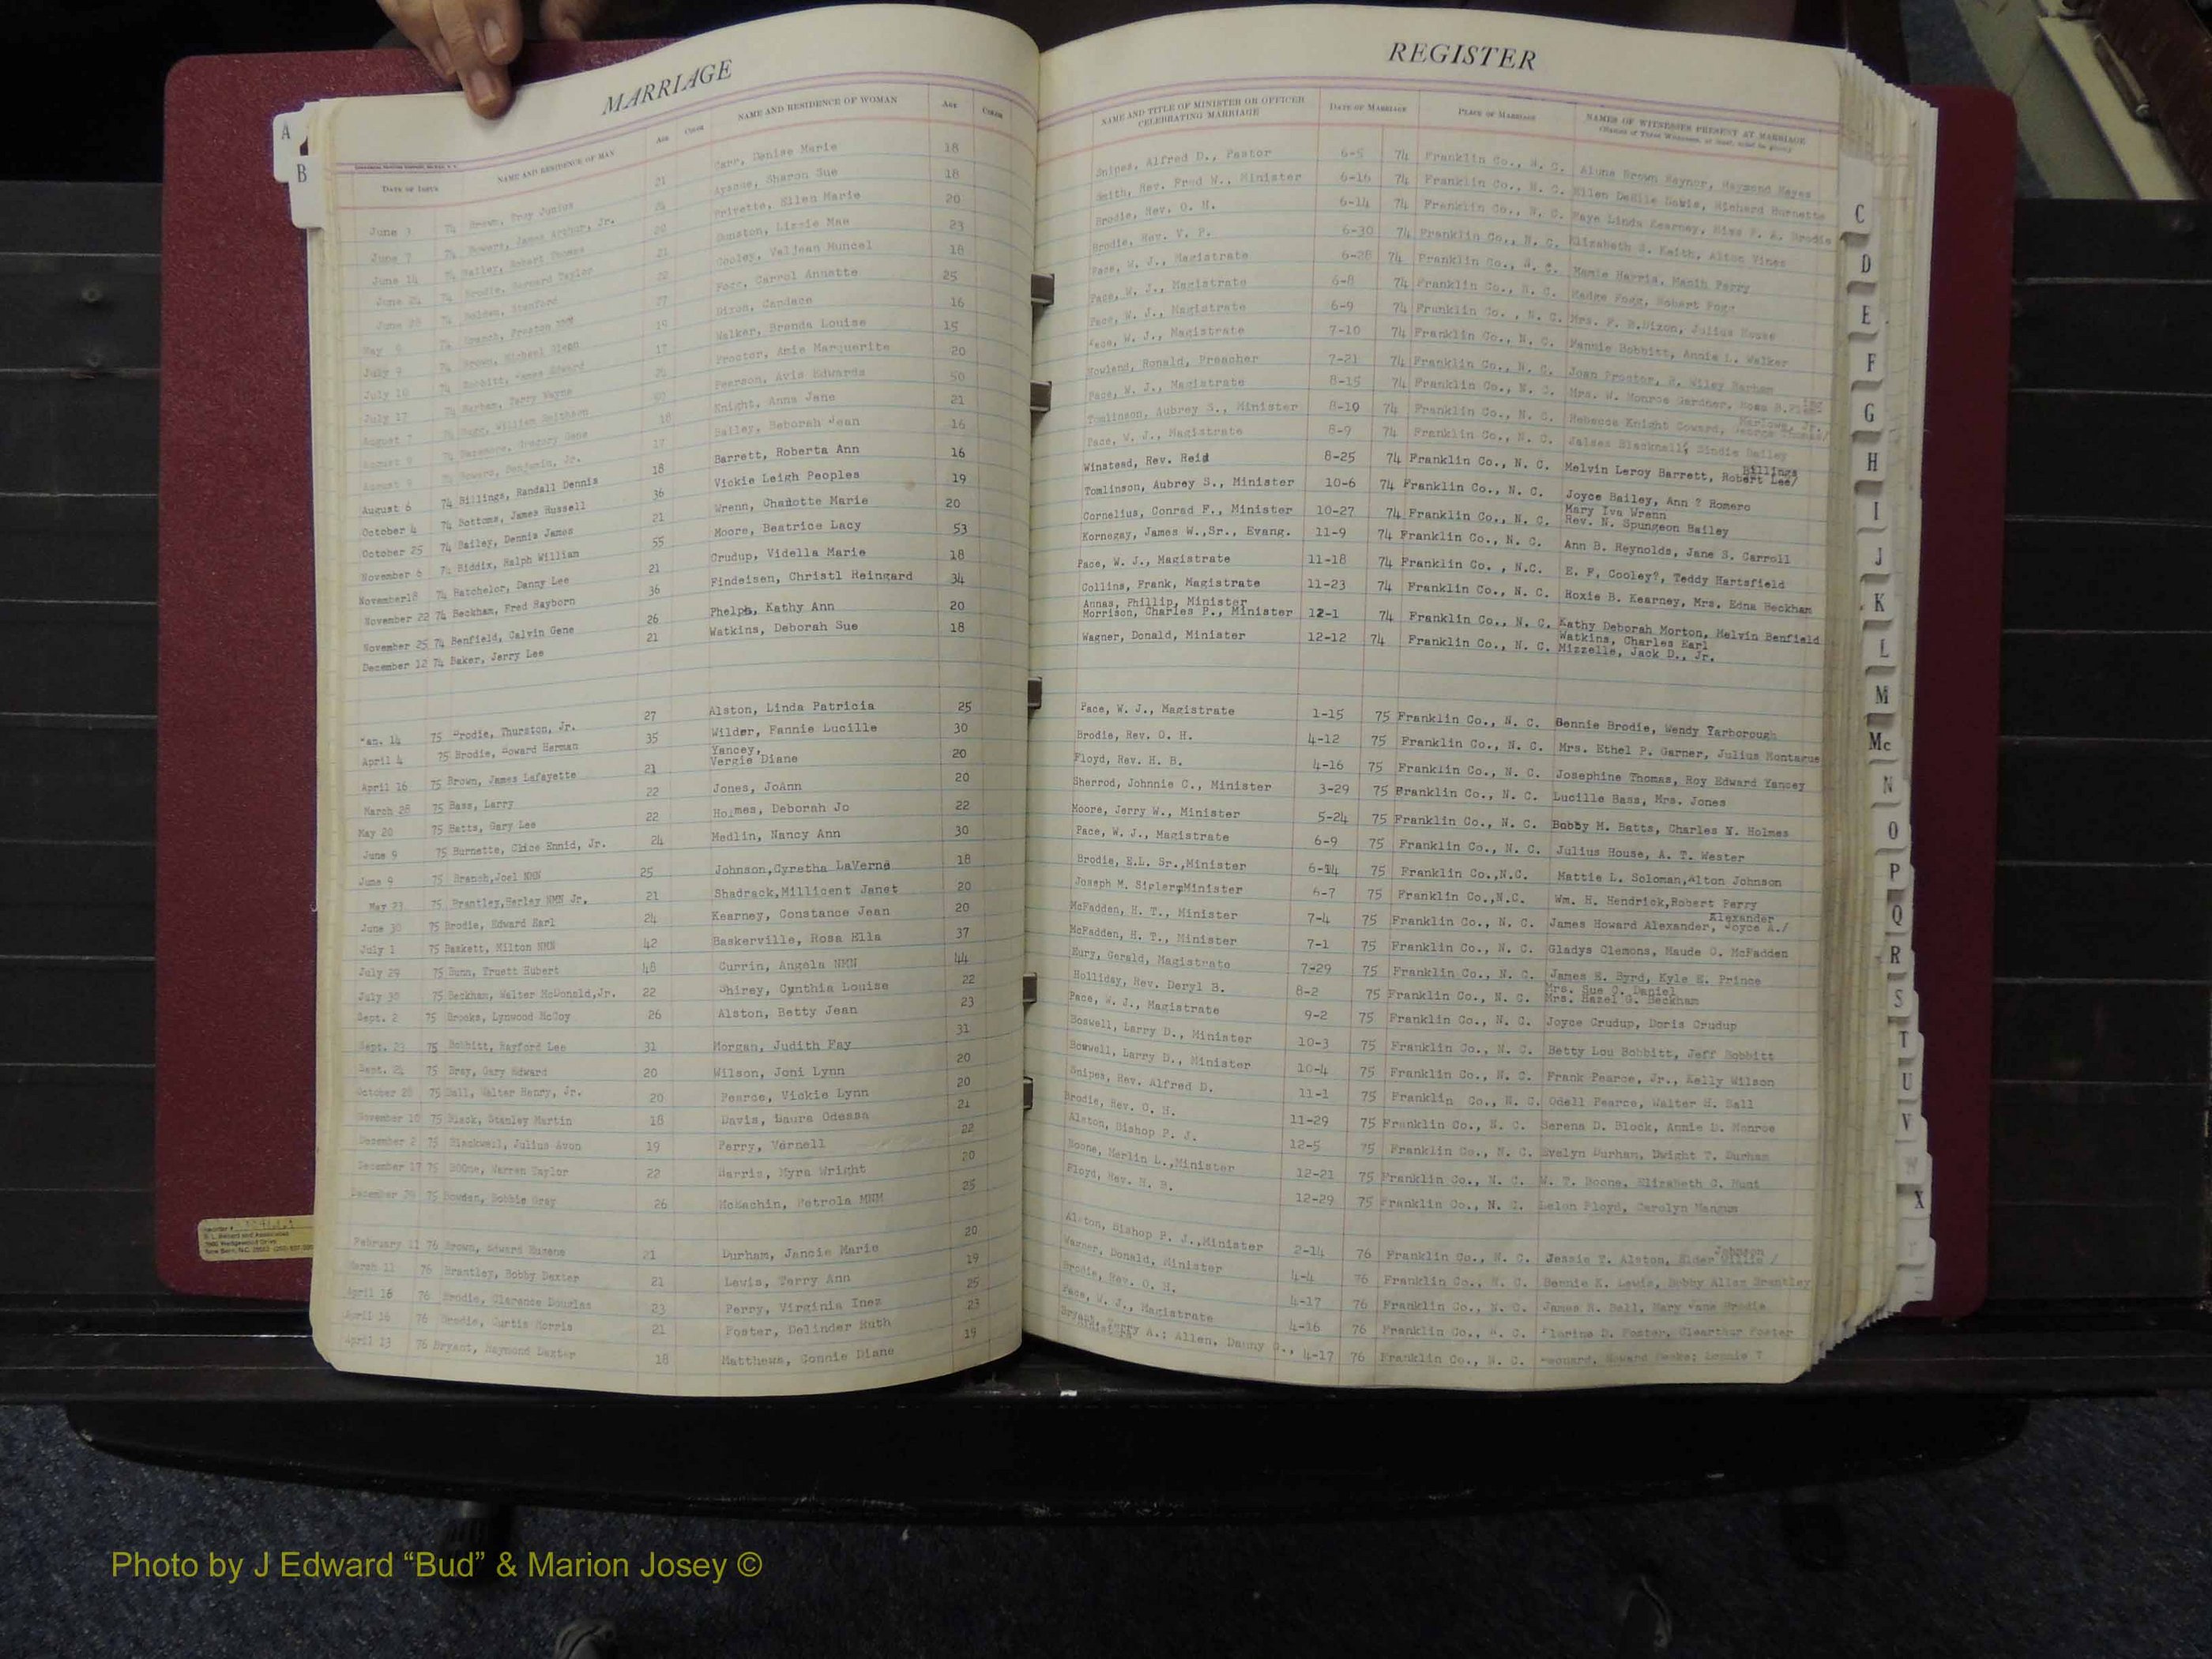 MARRIAGE
REGISTER
DATE OF ISSUE NAME AND RESIDENCE OF MAN AGE COLOR NAME AND RESIDENCE OF WOMAN AGE COLOR
NAME AND TITLE OF MINISTER OR OFFICER CELEBRATING MARRIAGE DATE OF MARRIAGE PLACE OF MARRIAGE NAMES OF WITNESSES PRESENT AT MARRIAGE
June 3 74 Brown, Troy Junius 21 Carr, Denise Marie 18 Snipes, Alfred D., Pastor 6-5 74 Franklin Co., N. C.
June 7 74 Bowers, James Arthur, Jr. Sharon Sue 18 Smith, Rev. Fred W., Minister 6-16 74 Franklin Co., N. C. Richard Burnette
June 14 74 Bailey, Robert Thomas 20 Privette, Ellen Marie 20 Brodie, Rev. O. H. 6-14 74 Franklin Co., N. C. Faye Linda Kearney, Miss Brodie
June 24 74 Brodie, Bernard Taylor 21 Dunston, Lizzie Mae 23 Brodie, Rev. V. P. 6-30 74 Franklin Co., N. C. Elizabeth S. Keith, Alton Vines
June 28 74 Bolden, Stanford 22 Cooley, Valjean Muncel 18 Pace, W. J., Magistrate 6-28 74 Franklin Co., N. C. Mamie Harris, Perry
74 Branch, Preston NMN 27 Fogg, Carrol Annette 25 Pace, W. J., Magistrate 6-8 74 Franklin Co., N. C. Madge Fogg, Robert Fogg
July 9 74 Brown, Michael Glenn 19 Dixon, Candace 16 Pace, W. J., Magistrate 6-9 74 Franklin Co., N. C. Mrs. P. B. Dixon, Julius House
July 10 74 Bobbitt, James Edward 17 Walker, Brenda Louise 15 Pace, W. J., Magistrate 7-10 74 Franklin Co., N. C. Fannie Bobbitt, Annie L. Walker
July 17 74 Barham, Terry Wayne Proctor, Amie Marguerite 20 Rowland, Ronald, Preacher 7-21 74 Franklin Co., N. C. Joan Proctor, R. Wiley Barham
August 7 74 William Smithson Pearson, Avis Edwards 50 Pace, W. J., Magistrate 8-15 74 Franklin Co., N. C. Mrs. W. Monroe Gardner,
August 9 74 Bazemore, Gregory Gene 18 Knight, Anna Jane 21 Tomlinson, Aubrey S., Minister 8-10 74 Franklin Co., N. C. Rebecca Knight Coward,
August 74 Bowers, Benjamin, Jr. 17 Bailey, Deborah Jean 16 Pace, W. J., Magistrate 8-9 74 Franklin Co., N. C. Blacknell, Sindie Bailey
August 6 74 Billings, Randall Dennis 18 Barrett, Roberta Ann 16 Winstead, Rev. Reid 8-25 74 Franklin Co., N. C. Melvin Leroy Barrett, Robert Lee/ Billings
October 4 74 Bottoms, James Russell 36 Vickie Leigh Peoples 19 Tomlinson, Aubrey S., Minister 10-6 74 Franklin Co., N. C. Joyce Bailey, Ann ? Romero
October 25 74 Bailey, Dennis James 21 Wrenn, Charlotte Marie 20 Cornelius, Conrad F., Minister 10-27 74 Franklin Co., N. C. Mary Iva Wrenn Rev. N. Spungeon Bailey
November 6 74 Biddix, Ralph William 55 Moore, Beatrice Lacy 53 Kornegay, James W.,Sr., Evang. 11-9 74 Franklin Co., N. C. Ann B. Reynolds, Jane S. Carroll
November18 74 Batchelor, Danny Lee 21 Crudup, Vidella Marie 18 Pace, W. J., Magistrate 11-18 74 Franklin Co. , N.C. E. F. Cooley?, Teddy Hartsfield
November 22 74 Beckham, Fred Rayborn 36 Findeisen, Christl Reingard 34 Collins, Frank, Magistrate 11-23 74 Franklin Co., N. C. Roxie B. Kearney, Mrs. Edna Beckham
November 25 74 Benfield, Calvin Gene 26 Phelps, Kathy Ann 20 Annas, Phillip, Minister Morrison, Charles P., Minister 12-1 74 Franklin Co., N. C. Kathy Deborah Morton, Melvin Benfield
December 12 74 Baker, Jerry Lee 21 Watkins, Deborah Sue 18 Wagner, Donald, Minister 12-12 74 Franklin Co., N. C. Watkins, Charles Earl Mizzelle, Jack D., Jr.
Jan. 14 75 Brodie, Thurston, Jr. 27 Alston, Linda Patricia 25 Pace, W. J., Magistrate 1-15 75 Franklin Co., N. C. Bennie Brodie, Wendy Yarborough
April 4 75 Brodie, Howard Herman 35 Wilder, Fannie Lucille 30 Brodie, Rev. O. H. 4-12 75 Franklin Co., N. C. Mrs. Ethel P. Garner, Julius Montague
April 16 75 Brown, James Lafayette 21 Yancey, Vergie Diane 20 Floyd, Rev. H. B. 4-16 75 Franklin Co., N. C. Josephine Thomas, Roy Edward Yancey
March 28 75 Bass, Larry 22 Jones, JoAnn 20 Sherrod, Johnnie C., Minister 3-29 75 Franklin Co., N. C. Lucille Bass, Mrs. Jones
May 20 75 Batts, Gary Lee 22 Holmes, Deborah Jo 22 Moore, Jerry W., Minister 5-24 75 Franklin Co., N. C. Bobby M. Batts, Charles N. Holmes
June 9 75 Burnette, Ennid, Jr. 24 Medlin, Nancy Ann 30 Pace, W. J., Magistrate 6-9 75 Franklin Co., N. C. Julius House, A. T. Wester
June 9 75 Branch,Joel NMN 25 Johnson,Cyretha LaVerne 18 Brodie, E.L. Sr.,Minister 6-14 75 Franklin Co.,N.C. Mattie L. Soloman,Alton Johnson
May 23 75 Brantley,Harley NMN Jr. 21 Shadrack,Millicent Janet 20 Joseph M. Sipler,Minister 6-7 75 Franklin Co.,N.C. Wm. H. Hendrick,Robert Perry
June 30 75 Brodie, Edward Earl 24 Kearney, Constance Jean 20 McFadden, H. T., Minister 7-4 75 Franklin Co., N. C. James Howard Alexander, Joyce A./ Alexander
July 1 75 Baskett, Milton NMN 42 Baskerville, Rosa Ella 37 McFadden, H. T., Minister 7-1 75 Franklin Co., N. C. Gladys Clemons, Maude O. McFadden
July 29 75 Bunn, Truett Hubert 48 Currin, Angela NMN 44 Eury, Gerald, Magistrate 7-29 75 Franklin Co., N. C. James E. Byrd, Kyle E. Prince
July 30 75 Beckham, Walter McDonald,Jr. 22 Shirey, Cynthia Louise 22 Holliday, Rev. Deryl B. 8-2 75 Franklin Co., N. C. Mrs. Sue C. Daniel Mrs. Hazel G. Beckham
Sept. 2 75 Brooks, Lynwood McCoy 26 Alston, Betty Jean 23 Pace, W. J., Magistrate 9-2 75 Franklin Co., N. C. Joyce Crudup, Doris Crudup
Sept. 23 75 Bobbitt, Rayford Lee 31 Morgan, Judith Fay 31 Boswell, Larry D., Minister 10-3 75 Franklin Co., N. C. Betty Lou Bobbitt, Jeff Bobbitt
Sept. 24 75 Bray, Gary Edward 20 Wilson, Joni Lynn 20 Boswell, Larry D., Minister 10-4 75 Franklin Co., N. C. Frank Pearce, Jr., Kelly Wilson
October 28 75 Ball, Walter Henry, Jr. 20 Pearce, Vickie Lynn 20 Snipes, Rev. Alfred D. 11-1 75 Franklin Co., N. C. Odell Pearce, Walter H. Ball
November 10 75 Black, Stanley Martin 18 Davis, Laura Odessa 21 Brodie, Rev. O. H. 11-29 75 Franklin Co., N. C. Serena D. Block, Annie D. Monroe
December 2 75 Blackwell, Julius Avon 19 Perry, Vernell 22 Alston, Bishop P. J. 12-5 75 Franklin Co., N. C. Evelyn Durham, Dwight T. Durham
December 17 75 BOOne, Warren Taylor 22 Harris, Myra Wright 20 Boone, Merlin L.,Minister 12-21 75 Franklin Co., N. C. W. T. Boone, Elizabeth C. Hunt
December 29 75 Bowden, Bobbie Gray 26 McEachin, Petrola NMN 25 Floyd, Rev. H. B. 12-29 75 Franklin Co., N. C. Lelon Floyd, Carolyn Mangum
February 11 76 Brown, Edward Eugene 21 Durham, Jancie Marie 20 Alston, Bishop P. J.,Minister 2-14 76 Franklin Co., N. C. Jessie T. Alston, Elder Ollie / Johnson
March 11 76 Brantley, Bobby Daxter 21 Lewis, Terry Ann 19 Wagner, Donald, Minister 4-4 76 Franklin Co., N. C. Bernie K. Lewis, Bobby Allen Brantley
April 16 76 Brodie, Clarence Douglas 23 Perry, Virginia Inez 25 Brodie, Rev. O. H. 4-17 76 Franklin Co., N. C. James R. Bell, Mary Jane Brodie
April 16 76 Brodie, Curtis Morris 21 Foster, Delinder Ruth 23 Pace, W. J., Magistrate 4-16 76 Franklin Co., N. C. Florine D. Foster, Clearthur Foster
April 13 76 Bryant, Raymond Daxter 18 Matthews, Connie Diane 19 Bryant, Terry A.; Allen, Danny G., Ministers 4-17 76 Franklin Co., N. C. Leonard,
A
B
C
D
E
F
G
H
I
J
K
L
M
Mc
N
O
P
Q
R
S
T
U
V
W
X
Y
Photo by J Edward “Bud” & Marion Josey ©